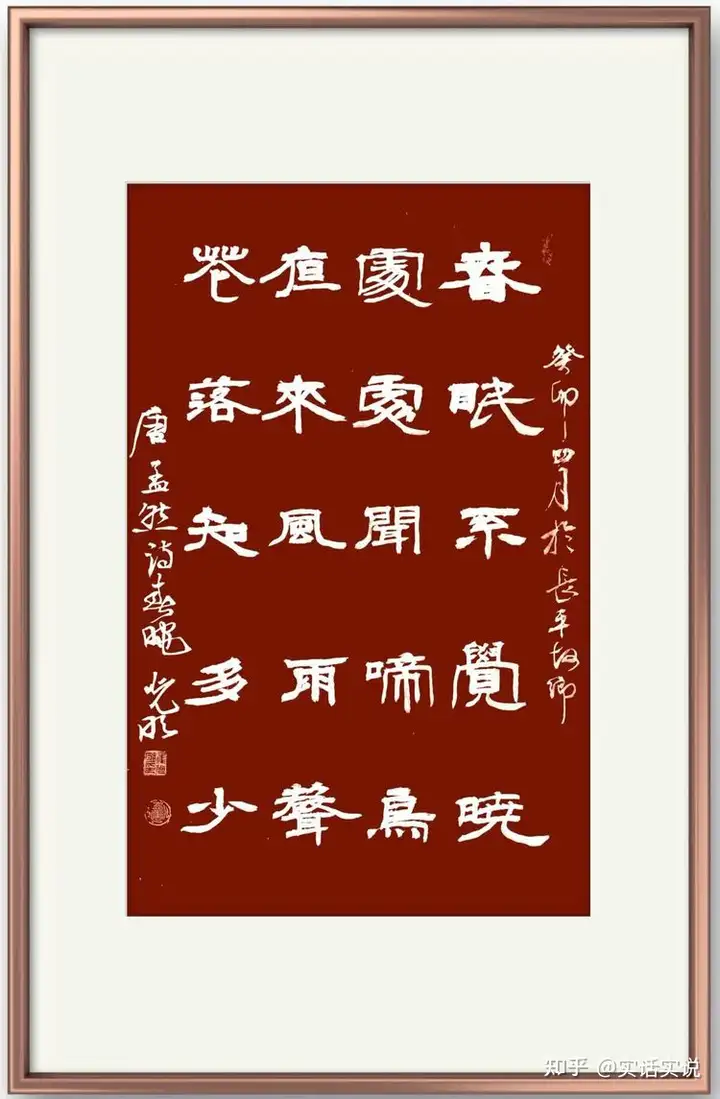 癸卯四月於長平故鄉
春眠不覺曉
處處聞啼鳥
夜來風雨聲
花落知多少
唐孟然诗春曉 光明
知乎 @实话实说